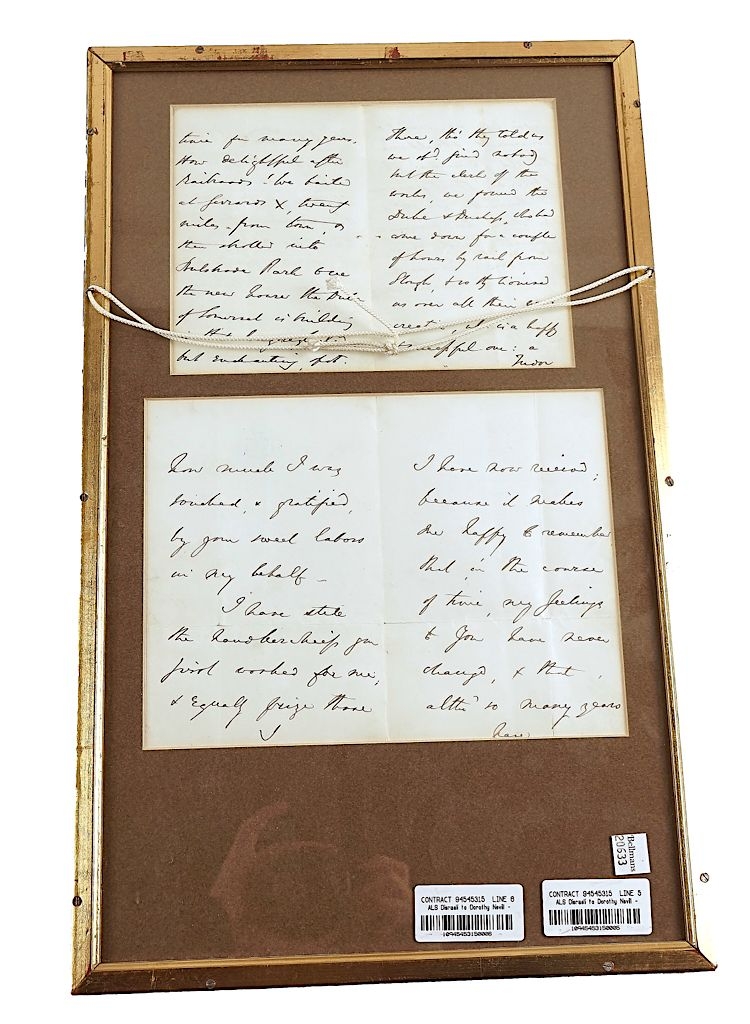 time for many years.
How delightful after
Railroads! We baited
at Gerrards X, twenty
miles from town, &
then strolled into
Bulstrode Park to see
the new house the Duke
of Somerset is building
in that
but enchanting spot.
There, tho' they told us
we shd. find nobody
but the clerk of the
works, we found the
Duke & Duchess, who had
come down for a couple
of hours by rail from
Slough, & so they
us over all their
creation, it is a happy
one: a
Tudor
how much I was
touched, & gratified,
by your sweet labors
in my behalf –
I have still
the handkerchiefs you
first worked for me,
& equally prize those
I have now received;
because it makes
me happy to remember
that, in the course
of time, my feelings
to you have never
changed, & that,
altho' so many years
have
Bellmans
20633
CONTRACT 94545315 LINE 6
ALS Disraeli to Dorothy Nevill -
10945453150006
CONTRACT 94545315 LINE 5
ALS Disraeli to Dorothy Nevill -
10945453150005